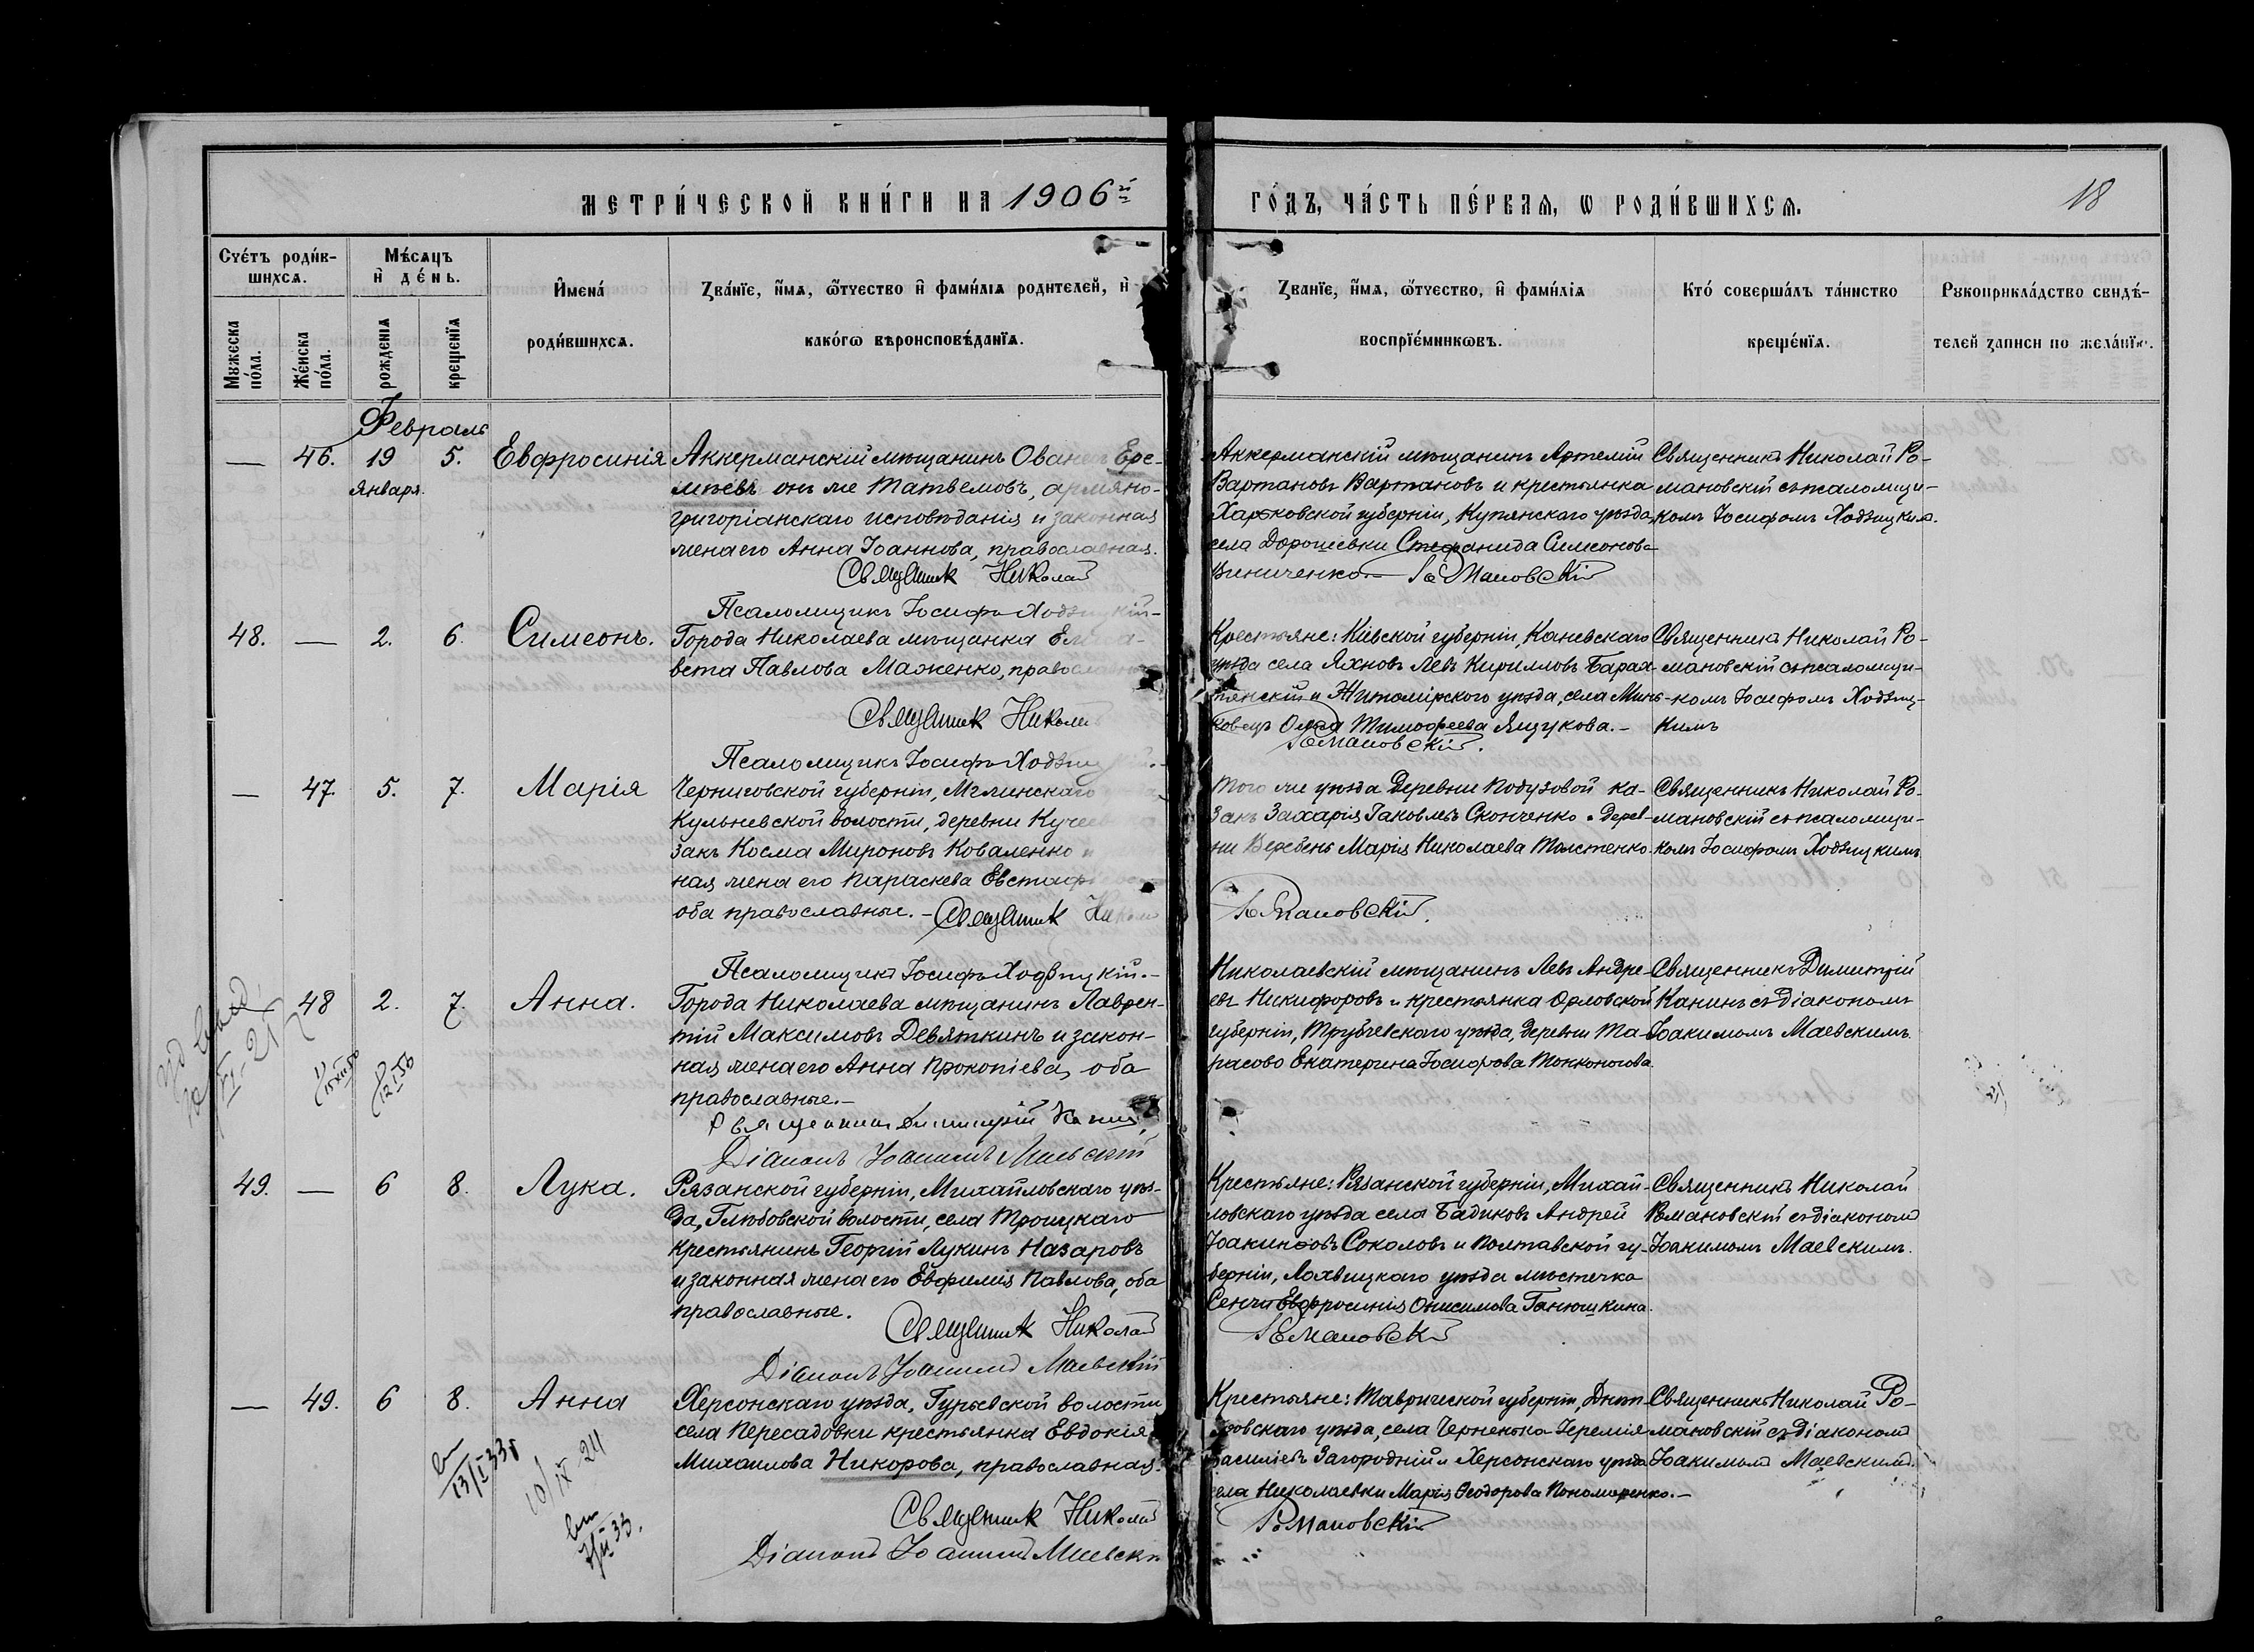 МЕТРИ́ЧЕСКОЙ КНИ́ГИ НА 1906й ГО́ДЪ, ЧА́СТЬ ПЕ́РВАЯ, Ѡ РОДИ́ВШИХСЯ.
18
Сче́тъ роди́в-
шихся.
Мѣ́сяцъ
и де́нь.
Имена́
роди́вшихся.
Зва́нїе, и́мя, ѻ́тчество и фами́лїа родителей, и
како́гѡ вѣроисповѣ́данїя.
Званїе, и́мя, ѻ́тчество, и фами́лїа
воспрїе́мникѡвъ.
Кто́ соверша́лъ та́инство
креще́нїя.
Рукоприкла́дство свидѣ́-
телей записи по жела́нїю.
Мужеска
по́ла.
Же́нска
по́ла.
рожденїя
крещенїя
Февраль
— 46. 19 5. Евфросинія
января.
Аккерманскій мѣщанинъ Ованесъ Ере-
мѣевъ онъ же Татвемовъ, армяно-
григоріанскаго исповѣданія и законная
жена его Анна Іоаннова, православная.
Священник Николай
Псаломщикъ Іосифъ Ходзицкій
Аккерманскій мѣщанинъ Артемій
Вартановъ Вартановъ и крестьянка
Харьковской губерніи, Купянскаго уѣзда,
села Дорошевки Стефанида Симеонова
Виниченко.— Романовскій
Священникъ Николай Ро-
мановскій съ псаломщи-
комъ Іосифомъ Ходзицкимъ.
48. — 2. 6. Симеонъ.
Города Николаева мѣщанка Елиса-
вета Павлова Маженко, православная
Священник Николай
Псаломщикъ Іосифъ Ходзицкій.
Крестьяне: Кіевской губерніи, Каневскаго
уѣзда села Яхновъ Левъ Кирилловъ Барах-
тянскій и Житомірского уѣзда, села Минь-
ковецъ Ольга Тимофеева Ящукова.—
Романовскій.
Священникъ Николай Ро-
мановскій съ псаломщи-
комъ Іосифомъ Ходзиц-
кимъ
— 47. 5. 7. Марія
Черниговской губерніи, Мглинскаго
Кульневской волости, деревни
закъ Косма Мироновъ Коваленко и
ная жена его Параскева
оба православные.— Священник Николай
Псаломщикъ Іосифъ Ходзицкій.—
того же уѣзда деревни Подузовой ка-
закъ Захарія Іаковлевъ Сконченко и дерев-
ни Веребень Марія Николаева Толстенко
Романовскій.
Священникъ Николай Ро-
мановскій съ псаломщи-
комъ Іосифомъ Ходзицкимъ
48 2. 7. Анна.
Города Николаева мѣщанинъ Лаврен-
тій Максимовъ Девяткинъ и закон-
ная жена его Анна Прокопіева, оба
православные.—
Священникъ Димитрій Канинъ
Діаконъ Іоакимъ Маевскій
Николаевскій мѣщанинъ Левъ Андре-
евъ Никифоровъ и крестьянка Орловской
губерніи, Трубчевскаго уѣзда, деревни Та-
расово Екатерина Іосифова Тонконогова
Священникъ Димитрій
Канинъ съ діакономъ
Іоакимомъ Маевскимъ.
49. — 6 8. Лука.
Рязанской губерніи, Михайловскаго уѣз-
да, Глѣбовской волости, села Троицкаго
крестьянинъ Георгій Лукинъ Назаровъ
и законная жена его Евфимія Павлова, оба
православные.
Священник Николай
Діаконъ Іоакимъ Маевскій
Крестьяне: Рязанской губерніи, Михай-
ловскаго уѣзда села Бадиковъ Андрей
Іоакимовъ Соколовъ и Полтавской гу-
берніи, Лохвицкаго уѣзда мѣстечка
Сенчи Евфросинія Онисимова Ганюшкина.
Романовскій
Священникъ Николай
Романовскій съ діакономъ
Іоакимомъ Маевскимъ.
— 49. 6 8. Анна
Херсонскаго уѣзда, Гурьевской волости
села Пересадовки крестьянка Евдокія
Михаилова Никорова, православная.
Священник Николай
Діаконъ Іоакимъ Маевскій
Крестьяне: Таврической губерніи, Днѣп-
ровскаго уѣзда, села Черненька Іеремія
Василіевъ Загородній и Херсонскаго уѣзда
села Николаевки Марія Феодорова Пономаренко.—
Романовскій
Священникъ Николай Ро-
мановскій съ діакономъ
Іоакимомъ Маевскимъ.
13/I 33
10/IX 24